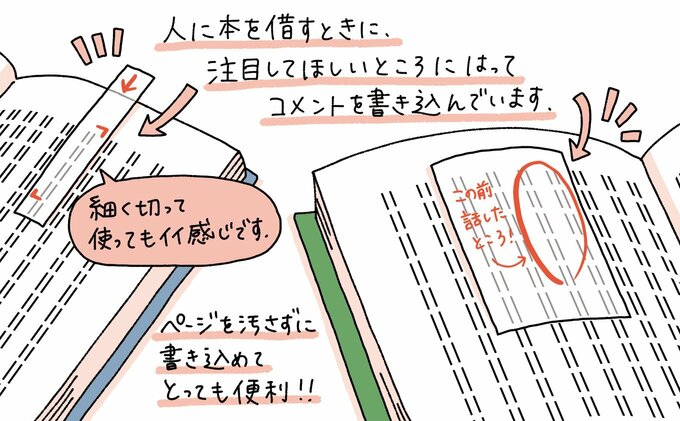 人に本を借すときに、
注目してほしいところにはって
コメントを書き込んでいます.
細く切って
使ってもイイ感じです.
この前
話した
ところ!
ページを汚さずに
書き込めて
とっても便利!!